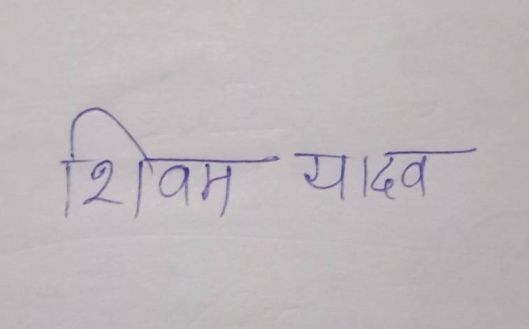 शिवम यादव